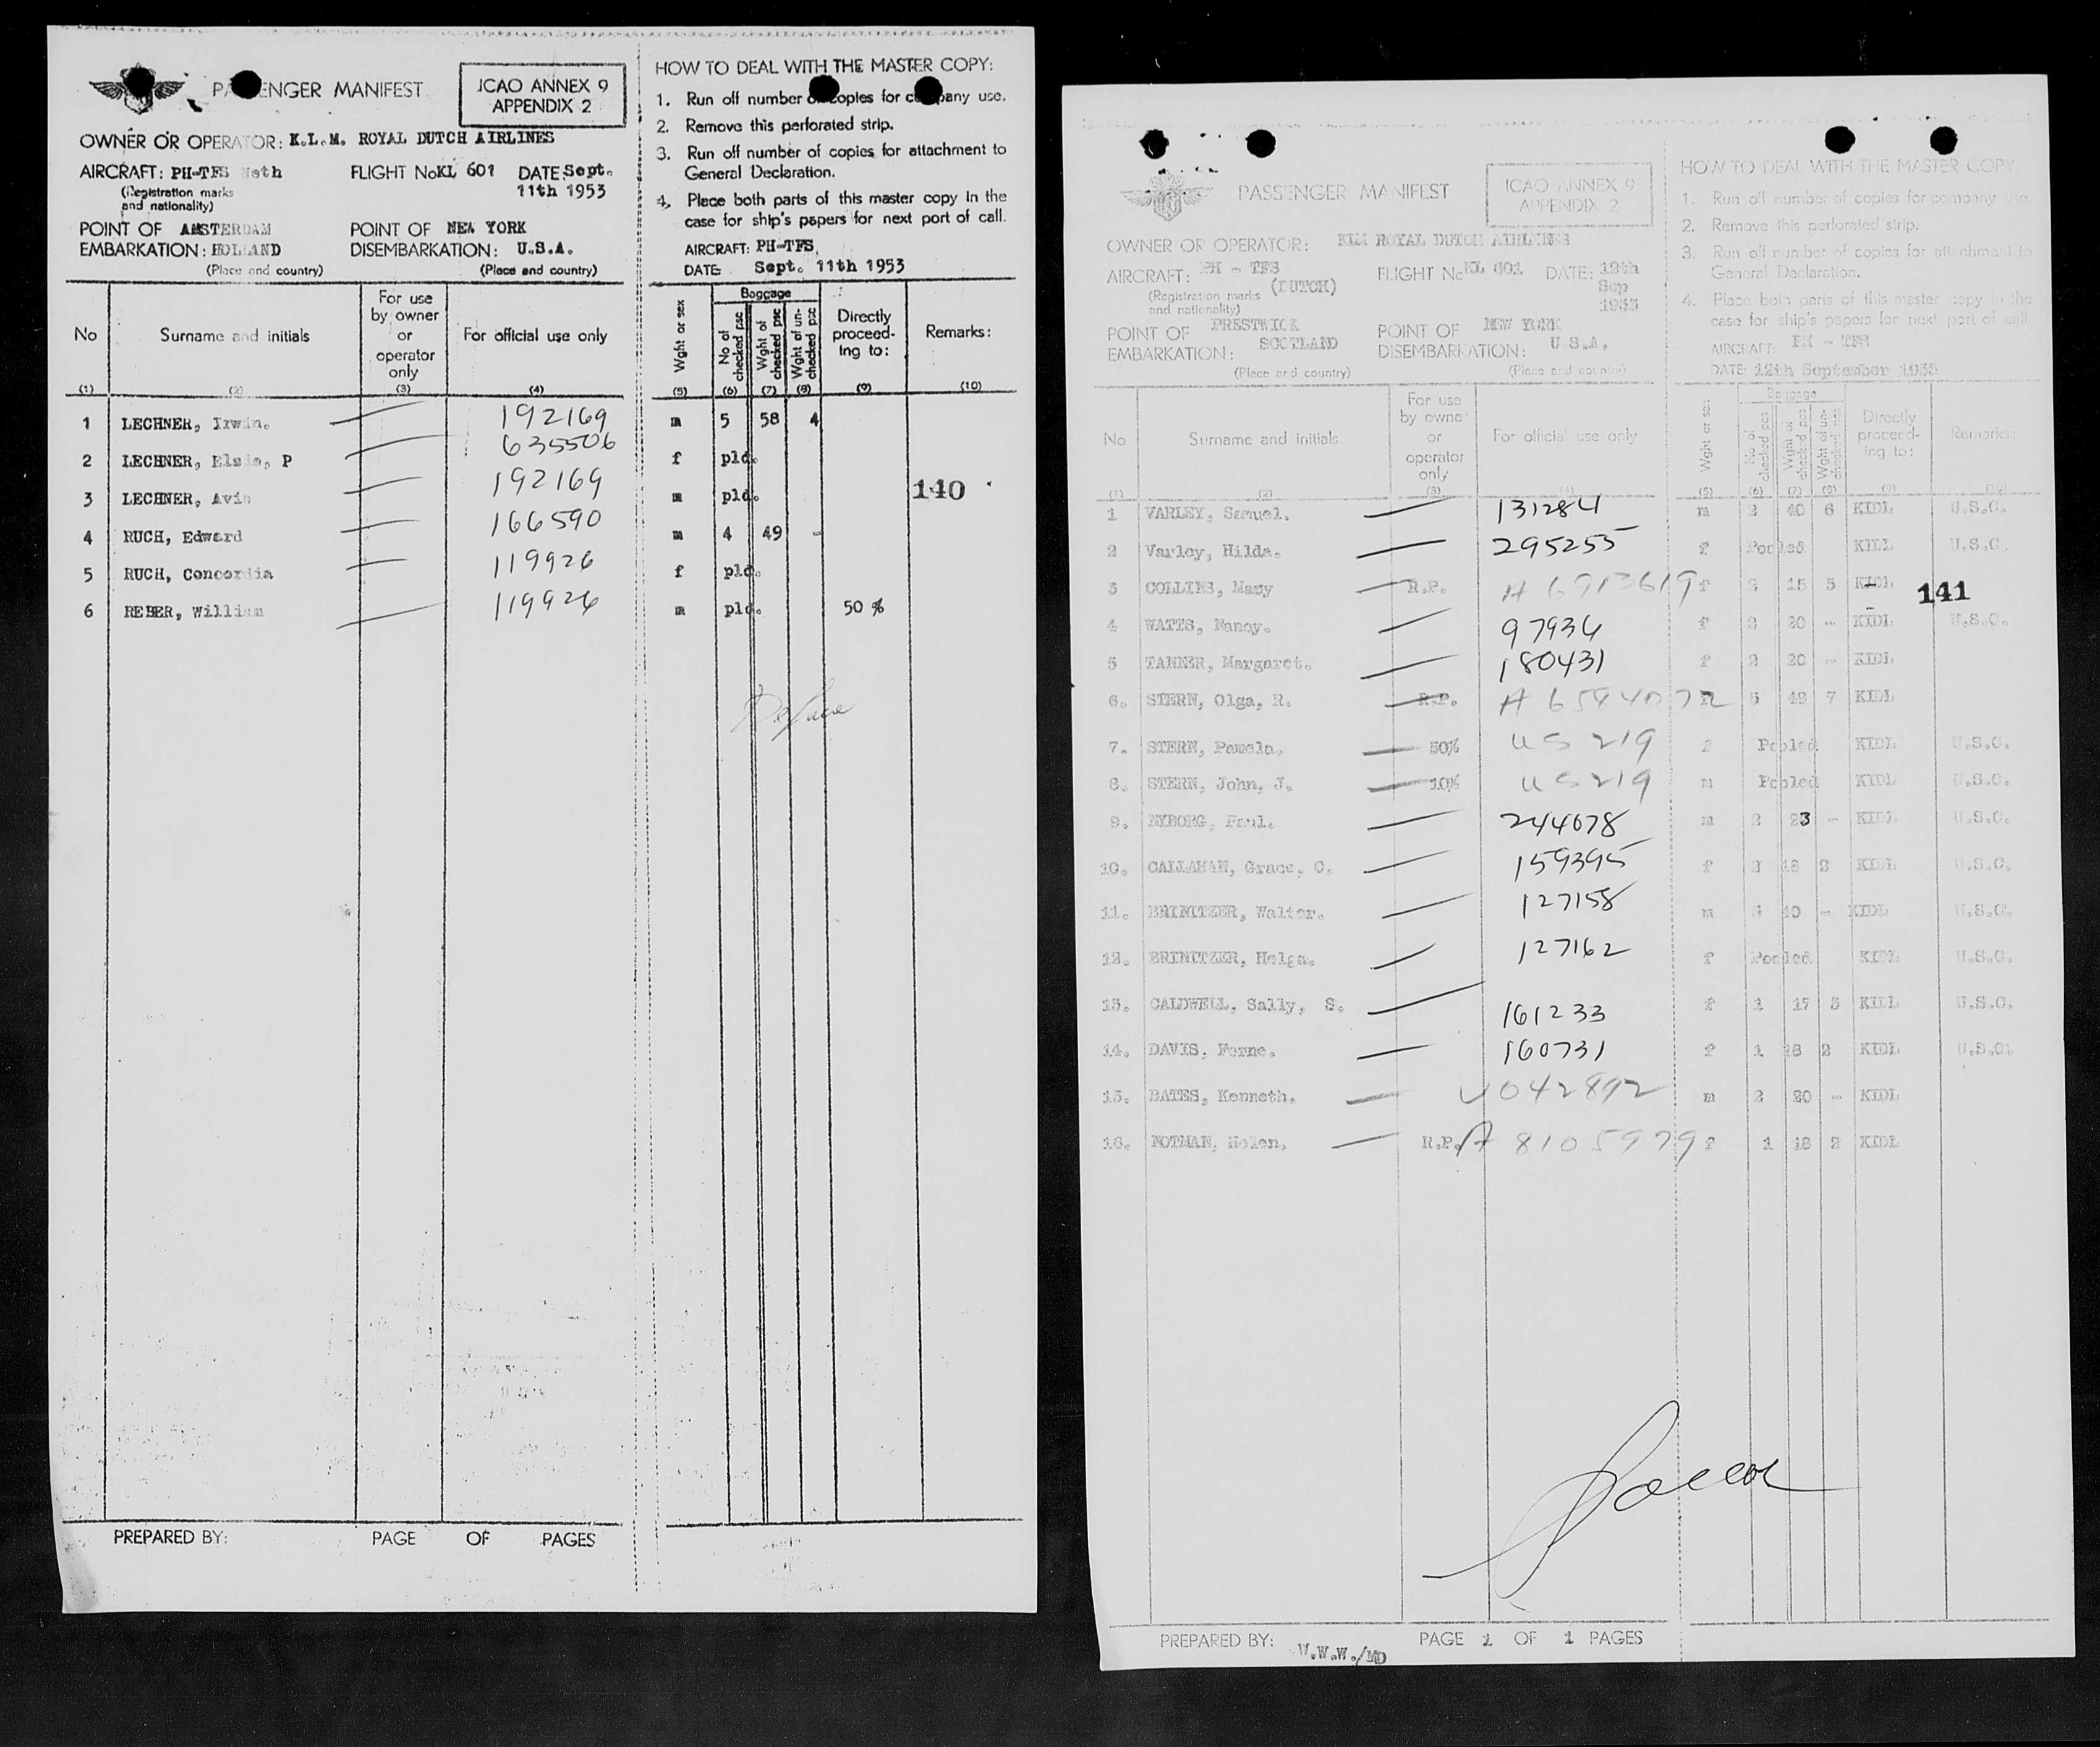 PASSENGER MANIFEST
ICAO ANNEX 9
APPENDIX 2
OWNER OR OPERATOR: K.L.M. ROYAL DUTCH AIRLINES
AIRCRAFT: PH-TFS Neth FLIGHT No KL 601 DATE: Sept. 11th 1953
(Registration marks and nationality)
POINT OF EMBARKATION: AMSTERDAM HOLLAND
(Place and country)
POINT OF DISEMBARKATION: NEW YORK U.S.A.
(Place and country)
No Surname and initials For use by owner or operator only For official use only
(1) (2) (3) (4)
1 LECHNER, Irwin. 192169
2 LECHNER, Elsie, P 635506
3 LECHNER, Avin 192169
4 RUCH, Edward 166590
5 RUCH, Concordia 119926
6 REBER, William 119926
PREPARED BY: PAGE OF PAGES
HOW TO DEAL WITH THE MASTER COPY:
1. Run off number of copies for company use.
2. Remove this perforated strip.
3. Run off number of copies for attachment to General Declaration.
4. Place both parts of this master copy in the case for ship's papers for next port of call.
AIRCRAFT: PH-TFS,
DATE Sept. 11th 1953
Wght or sex Baggage No of checked psc Wght of checked psc Wght of un-checked psc Directly proceed-ing to: Remarks:
(5) (6) (7) (8) (9) (10)
m 5 58 4
f pld.
m pld.
140
m 4 49 -
f pld.
m pld. 50 %
PASSENGER MANIFEST
ICAO ANNEX 9
APPENDIX 2
OWNER OR OPERATOR: KLM ROYAL DUTCH AIRLINES
AIRCRAFT: PH - TFS (DUTCH) FLIGHT No KL 601 DATE: 12th Sep 1953
(Registration marks and nationality)
POINT OF EMBARKATION: PRESTWICK SCOTLAND
(Place and country)
POINT OF DISEMBARKATION: NEW YORK U.S.A.
(Place and country)
No Surname and initials For use by owner or operator only For official use only
(1) (2) (3) (4)
1 VARLEY, Samuel. 131284
2 Varley, Hilda. 295255
3 COLLINS, Mary R.P. A 6913619
4 WATTS, Nancy. 97934
5 TANNER, Margaret. 180431
6. STERN, Olga, R. R.P. A 6584072
7. STERN, Pamela. 50% US 219
8. STERN, John, J. 10% US 219
9. NYBORG, Paul. 244078
10. CALLAHAN, Grace, C. 159395
11. BRINITZER, Walter. 127158
12. BRINITZER, Helga. 127162
13. CALDWELL, Sally, S. 161233
14. DAVIS, Ferne. 160731
15. BATES, Kenneth. V042892
16. NOTMAN, Helen. R.P. A 8105979
PREPARED BY: W.W.W./MD PAGE 1 OF 1 PAGES
HOW TO DEAL WITH THE MASTER COPY
1. Run off number of copies for company use.
2. Remove this perforated strip.
3. Run off number of copies for attachment to General Declaration.
4. Place both parts of this master copy in the case for ship's papers for next port of call
AIRCRAFT: PH - TFS
DATE: 12th September 1953
Wght or sex Baggage No of checked pcs Wght of checked psc Wght of un-checked psc Directly proceed-ing to: Remarks:
(5) (6) (7) (8) (9) (10)
m 2 40 6 KIDL U.S.C.
f Pooled KIDL U.S.C.
f 15 5 KIDL
141
f 2 20 - KIDL U.S.C.
f 2 20 - KIDL
5 48 7 KIDL
f Pooled KIDL U.S.C.
m Pooled KIDL U.S.C.
m 2 23 - KIDL U.S.C.
f 18 2 KIDL U.S.C.
m 40 - KIDL U.S.C.
f Pooled KIDL U.S.C.
f 1 17 3 KIDL U.S.C.
f 1 18 2 KIDL U.S.C.
m 2 20 - KIDL
f 1 18 2 KIDL